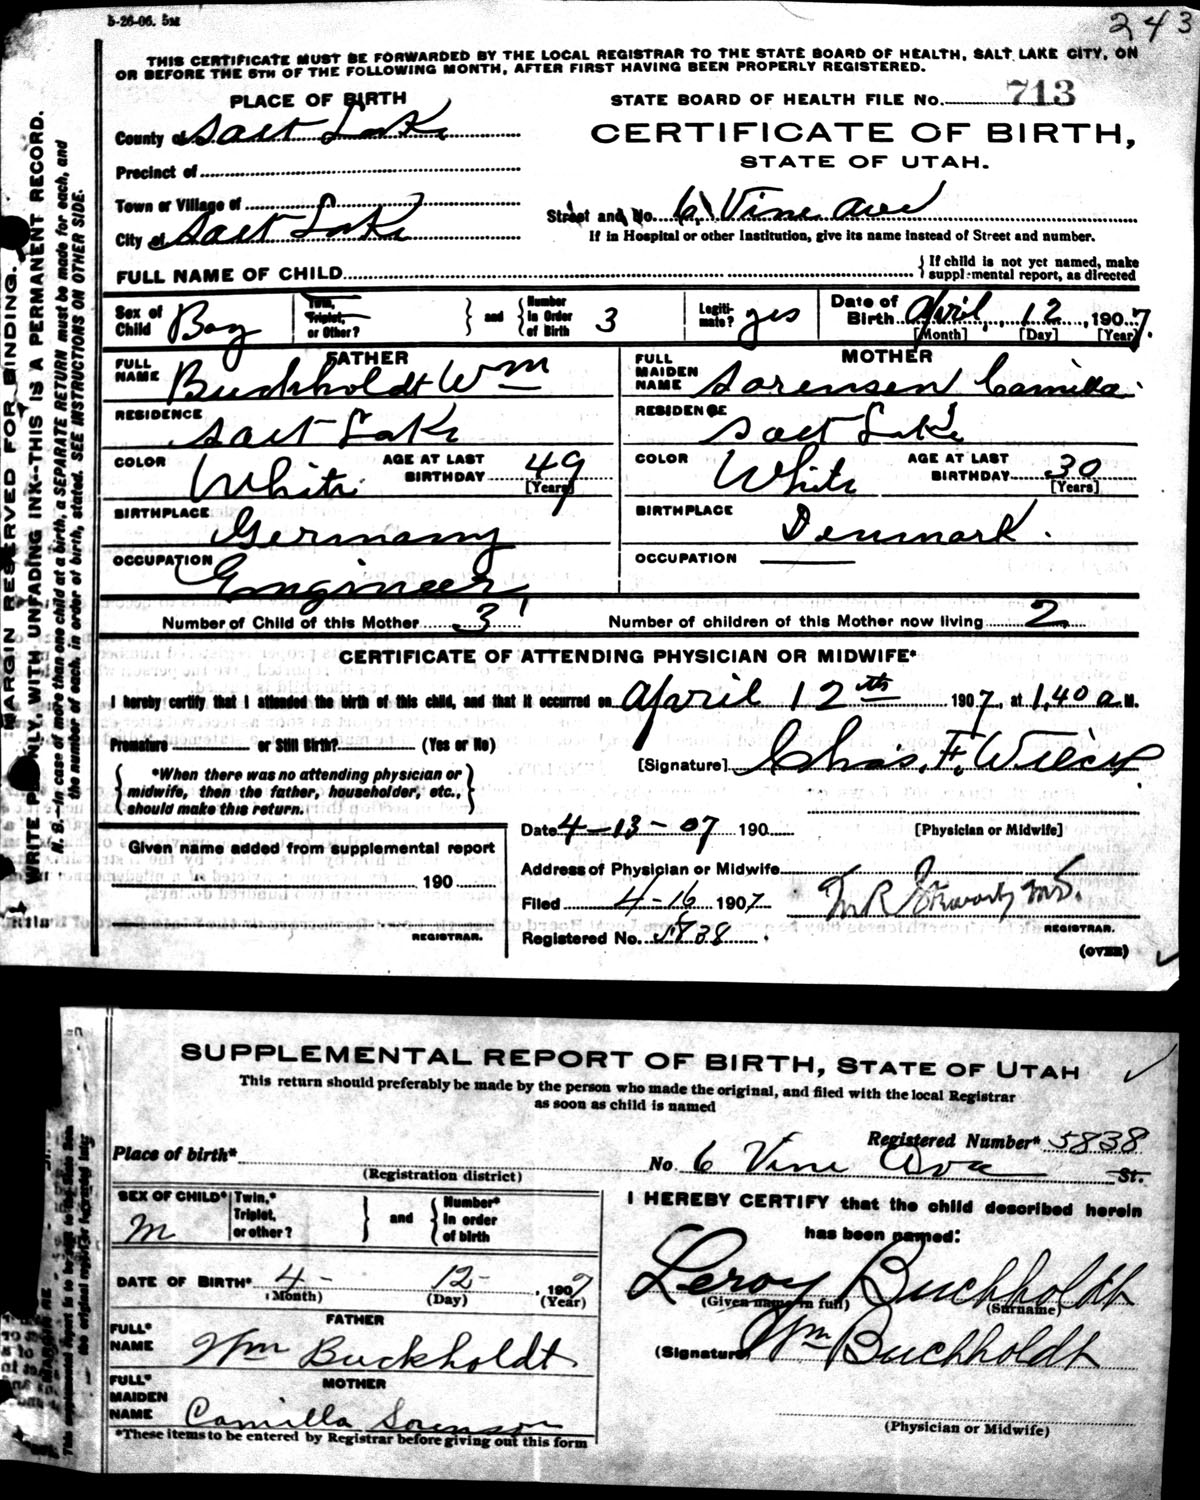 5-26-06. 5M
243
THIS CERTIFICATE MUST BE FORWARDED BY THE LOCAL REGISTRAR TO THE STATE BOARD OF HEALTH, SALT LAKE CITY, ON
OR BEFORE THE 5TH OF THE FOLLOWING MONTH, AFTER FIRST HAVING BEEN PROPERLY REGISTERED.
PLACE OF BIRTH
STATE BOARD OF HEALTH FILE No. 713
County of Salt Lake
CERTIFICATE OF BIRTH,
STATE OF UTAH.
Precinct of
Town or Village of
Street and No. 6 Vine Ave
City of Salt Lake
If in Hospital or other Institution, give its name instead of Street and number.
FULL NAME OF CHILD
If child is not yet named, make
supplemental report, as directed
Sex of Child Boy
Twin, Triplet, or Other?
and
Number in Order of Birth 3
Legiti-mate? yes
Date of Birth April, 12, 1907.
[Month] [Day] [Year]
FATHER
FULL NAME Buckholdt Wm
MOTHER
FULL MAIDEN NAME Sorensen Camilla
RESIDENCE Salt Lake
RESIDENCE Salt Lake
COLOR White
AGE AT LAST BIRTHDAY 49 [Years]
COLOR White
AGE AT LAST BIRTHDAY 30 [Years]
BIRTHPLACE Germany
BIRTHPLACE Denmark.
OCCUPATION Engineer
OCCUPATION
Number of Child of this Mother 3
Number of children of this Mother now living 2
CERTIFICATE OF ATTENDING PHYSICIAN OR MIDWIFE*
I hereby certify that I attended the birth of this child, and that it occurred on April 12th 1907, at 1.40 a.M.
Premature or Still Birth? (Yes or No)
[Signature] Chas. F. Wilcox
*When there was no attending physician or
midwife, then the father, householder, etc.,
should make this return.
Date 4-13-07 190
[Physician or Midwife]
Given name added from supplemental report
190
REGISTRAR.
Address of Physician or Midwife
Filed 4-16 1907
T. R. Stewart M.D.
REGISTRAR.
Registered No. 5838
(OVER)
MARGIN RESERVED FOR BINDING.
WRITE PLAINLY, WITH UNFADING INK--THIS IS A PERMANENT RECORD.
N. B.--In case of more than one child at a birth, a SEPARATE RETURN must be made for each, and
the number of each, in order of birth, stated. SEE INSTRUCTIONS ON OTHER SIDE.
SUPPLEMENTAL REPORT OF BIRTH, STATE OF UTAH
This return should preferably be made by the person who made the original, and filed with the local Registrar
as soon as child is named
Registered Number* 5838
Place of birth* No. 6 Vine Ave St.
(Registration district)
SEX OF CHILD* M
Twin,* Triplet, or other?
and
Number* in order of birth
I HEREBY CERTIFY that the child described herein
has been named:
DATE OF BIRTH* 4- 12- 1907
(Month) (Day) (Year)
Leroy Buchholdt
(Given name in full) (Surname)
FATHER
FULL* NAME Wm Buckholdt
(Signature) Wm Buchholdt
MOTHER
FULL* MAIDEN NAME Camilla Sorenson
*These items to be entered by Registrar before giving out this form
(Physician or Midwife)